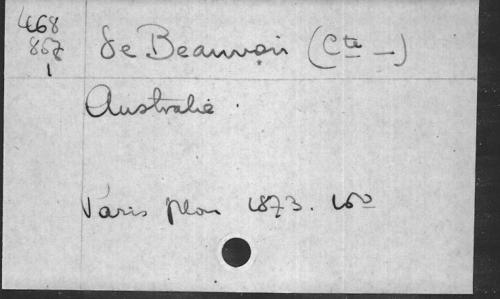 468
867
1
de Beauvoir (Cte —)
Australie.
Paris Plon 1873. 16o